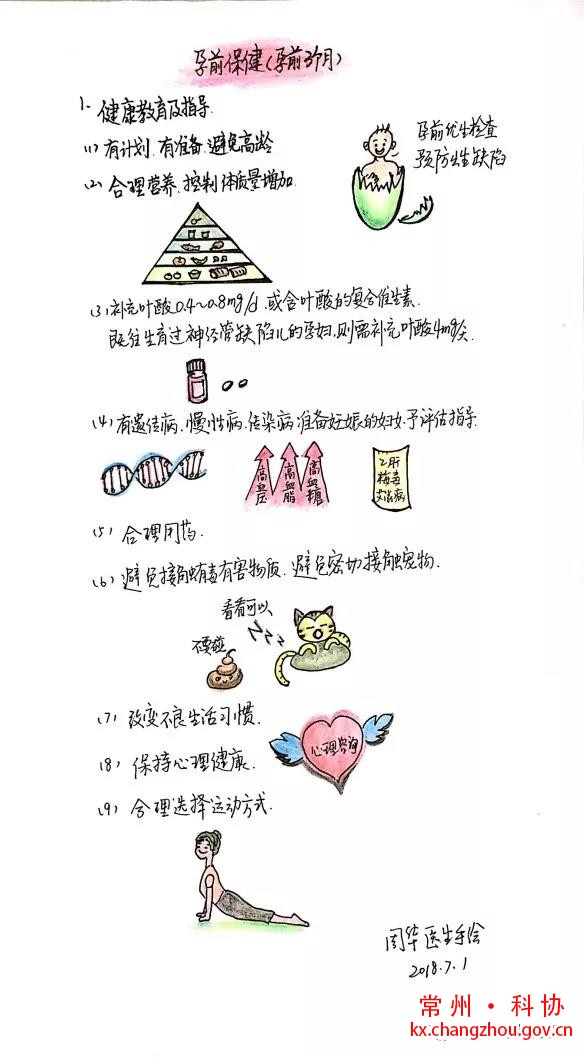 孕前保健(孕前3个月)
1、健康教育及指导.
(1) 有计划.有准备.避免高龄
孕前优生检查
预防出生缺陷
(2) 合理营养.控制体质量增加.
(3) 补充叶酸0.4~0.8mg/d.或含叶酸的复合维生素.
既往生育过神经管缺陷儿的孕妇.则需补充叶酸4mg/天.
(4) 有遗传病、慢性病、传染病准备妊娠的妇女.予评估指导.
高血压
高血脂
高血糖
乙肝
梅毒
艾滋病
(5) 合理用药.
(6) 避免接触有毒有害物质.避免密切接触宠物.
看看可以
ZZZ
不要碰
(7) 改变不良生活习惯.
心理咨询
(8) 保持心理健康.
(9) 合理选择运动方式.
周华医生手绘
2018.7.1
常州·科协
kx.changzhou.gov.cn